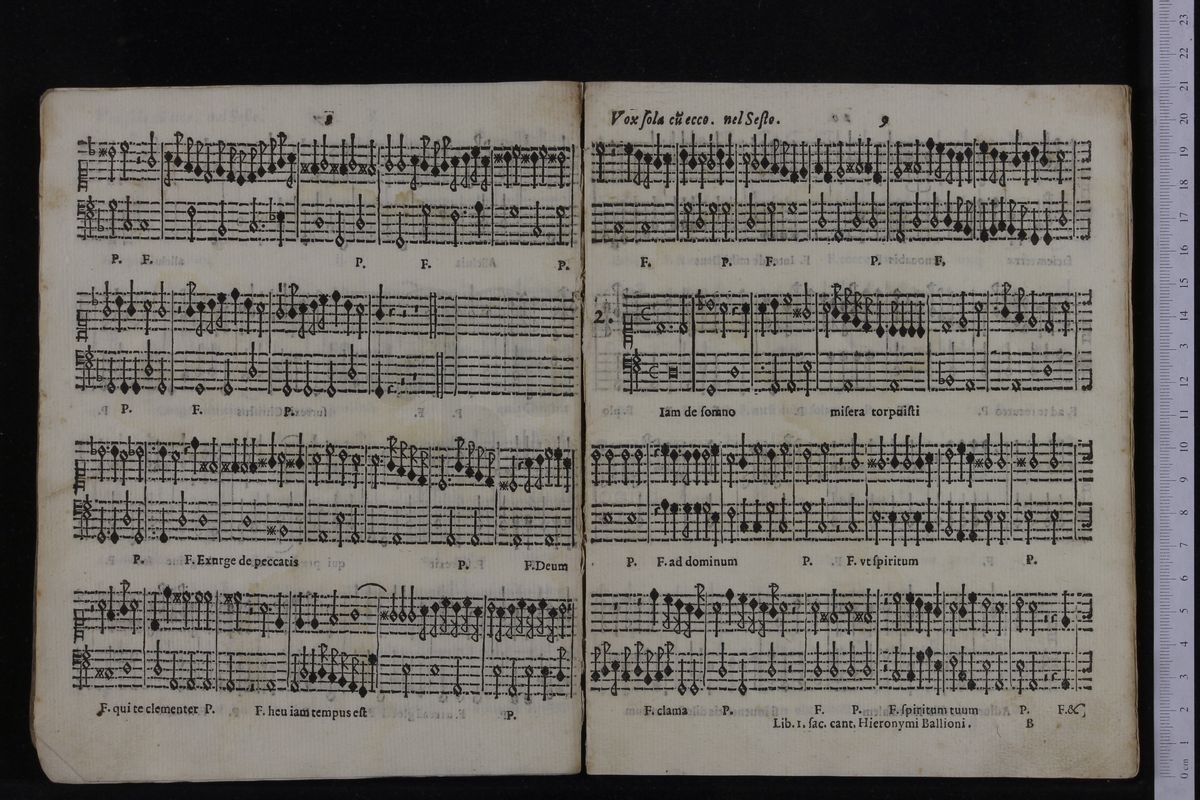 8
P. F. P. F. P.
P. F. P.
P. F. Exurge de peccatis P. F. Deum
F. qui te clementer P. F. heu iam tempus est P.
Vox sola cũ ecco. nel Sesto. 9
F. P. F. P. F.
2.
Iam de somno misera torpuisti
P. F. ad dominum P. F. vt spiritum P.
F. clama P. F. P. F. spiritum tuum P. F. &c
Lib. 1. sac. cant. Hieronymi Ballioni. B